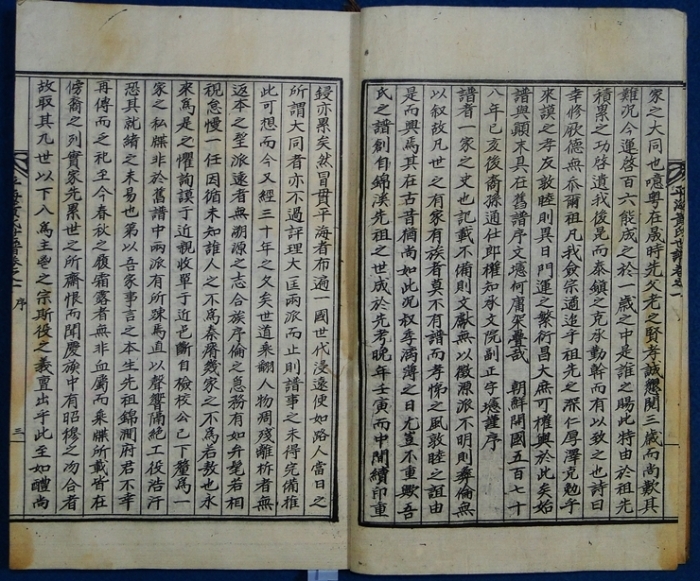 平海黃氏世譜卷之一
家之大同也噫粤在晟時先父老之賢孝誠懃閱三歲而尚歎其
難況今運啓百六能成之於一歲之中是誰之賜此特由於祖先
積累之功啓遺我後昆而泰鎮之克承勤幹而有以致之也詩曰
聿修厥德無忝爾祖凡我僉宗適追乎祖先之深仁厚澤克勉乎
來謨之孝友敦睦則異日門運之繁衍昌大庶可權輿於此矣始
譜與顚末具在舊譜序文何庸架疊哉 朝鮮開國五百七十
八年己亥後裔孫通仕郎權知承文院副正字謹序
譜者一家之史也記載不備則文獻無以徵源派不明則彝倫無
以叙故凡世之有家有族者莫不有譜而孝悌之風敦睦之誼由
是而興焉其在古昔猶尚如此况叔季薄之日尤豈不重歟吾
氏之譜創自錦溪先祖之世成於先考晚年壬寅而中間續印重
鋟亦累矣然冒貫平海者布遍一國世代浸遠便如路人當日之
所謂大同者亦不過評理大匡兩派而止則譜事之未得完備推
此可想而今又經三十年之久矣世道乖翻人物凋殘離析者無
返本之望派遠者無溯源之志合族序倫之意務有如弁髦若相
視怠慢一任因循未知誰人之不爲秦瘠幾家之不爲若敖也永
來爲是之懼詢謨于近親收單于近邑斷自檢校公已下釐爲一
家之私牒非於舊譜中兩派有所踈焉直以聲響隔絶工役浩汗
恐其就緖之未易也第以吾家事言之本生先祖錦澗府君不幸
再傳而乏祀至今春秋之履霜露者無非血屬而乘牒所載皆在
傍裔之列實家先累世之所齎恨而聞慶族中有昭穆之沕合者
故取其九世以下八爲主鬯之宗斯役之義置出乎此至如體尚
平海黃氏世譜卷之一 序 三